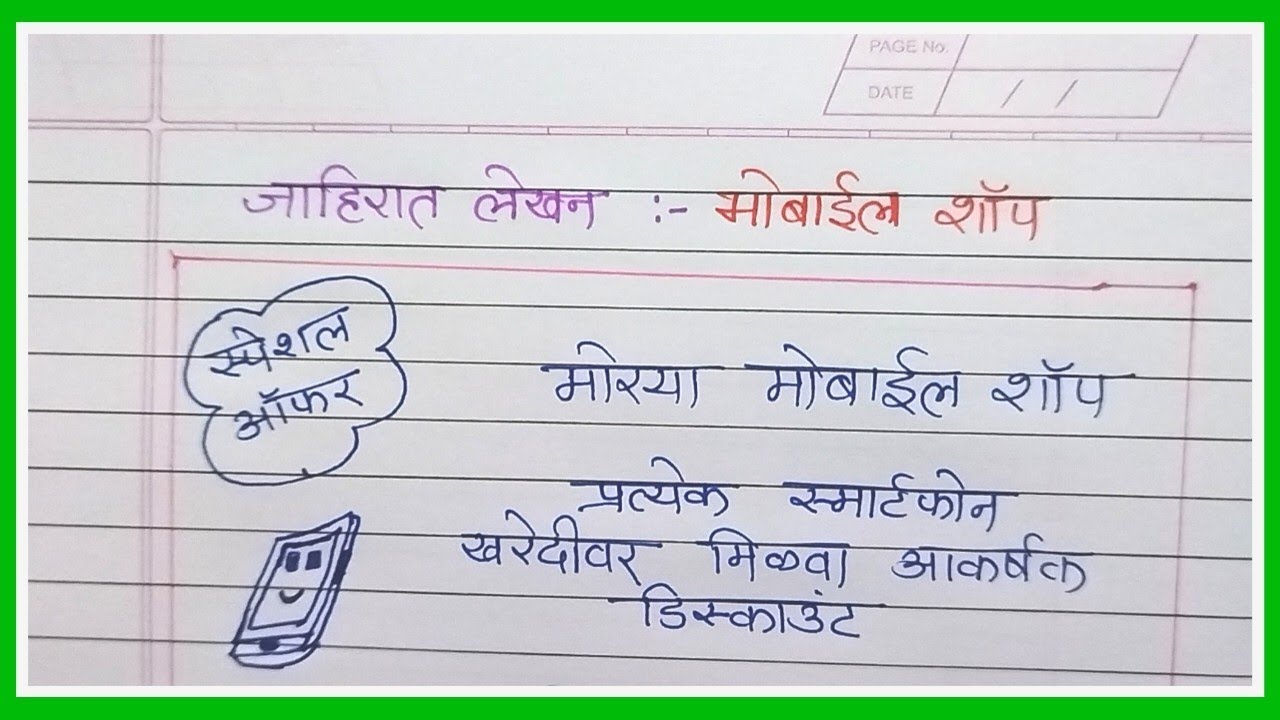 PAGE No.
DATE / /
जाहिरात लेखन :- मोबाईल शॉप
स्पेशल
ऑफर
मोरया मोबाईल शॉप
प्रत्येक स्मार्टफोन
खरेदीवर मिळवा आकर्षक
डिस्काउंट